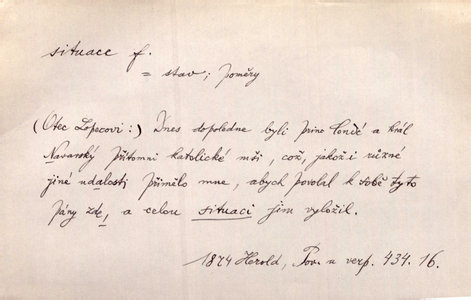 situace f.
= stav; poměry
(Otec Lopecovi:) Dnes dopoledne byli princ Condé a král
Navarský přítomni katolické mši, což, jakož i různé
jine udalosti přimělo mne, abych povolal k sobě tyto
pány zde, a celou situaci jim vyložil.
1874 Herold, Pov. u verp. 434. 16.